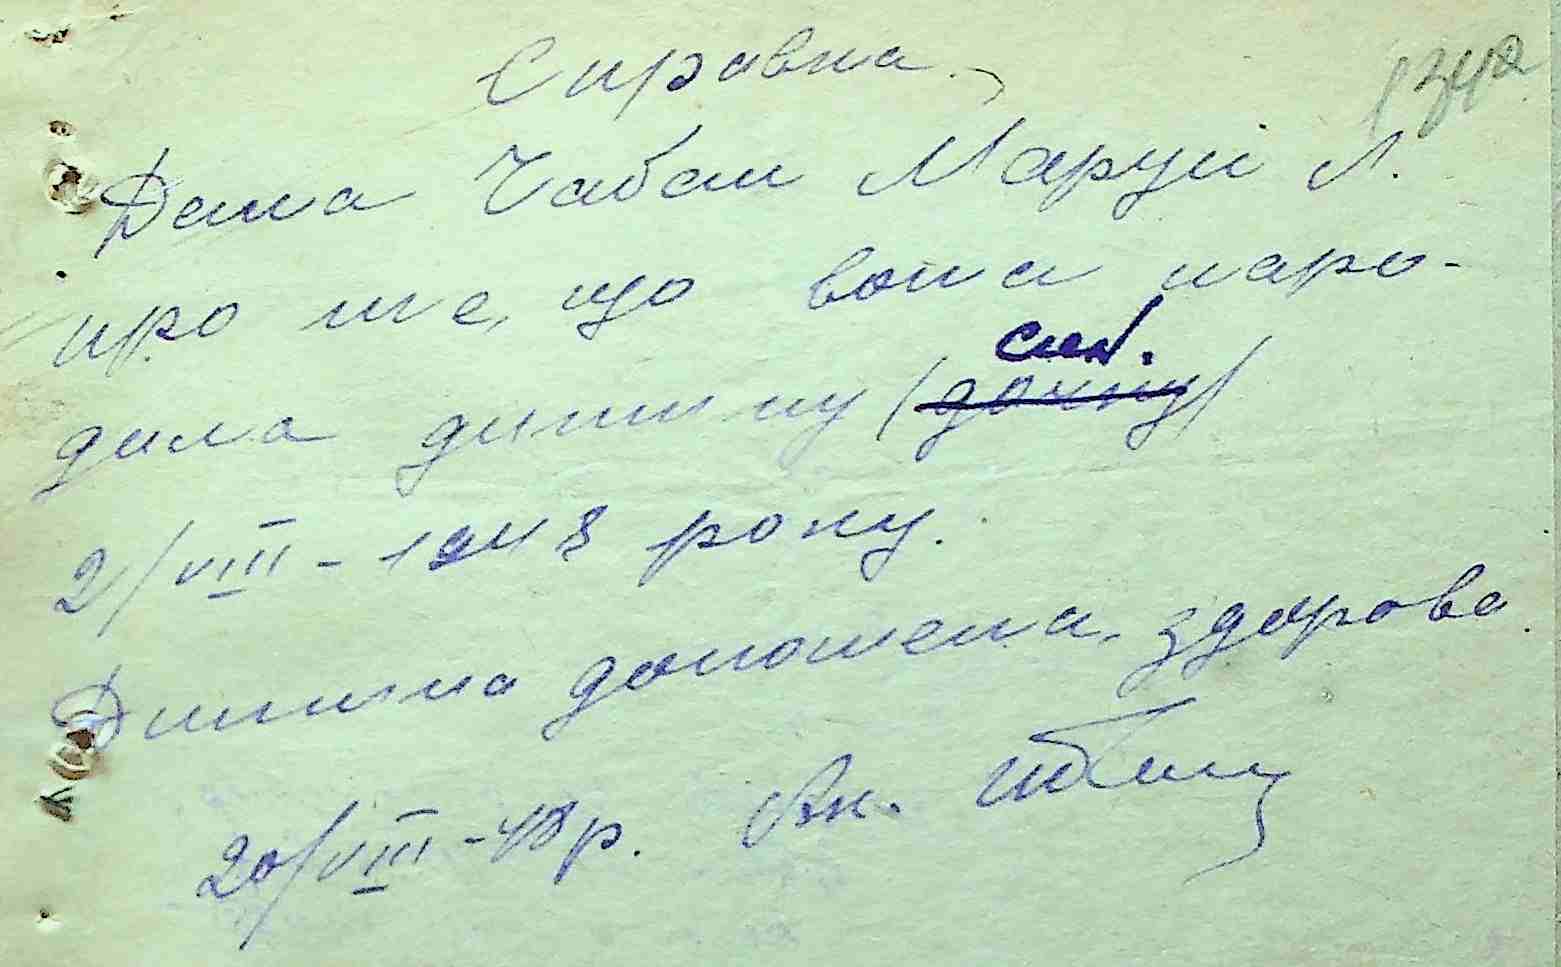 Справка
Дана Чабан Марусі Л.
про те, що вона наро-
дила дитину (дочку)
син.
2/VIII - 1948 року.
Дитина доношена, здорова.
20/VIII - 48 р. Ак.